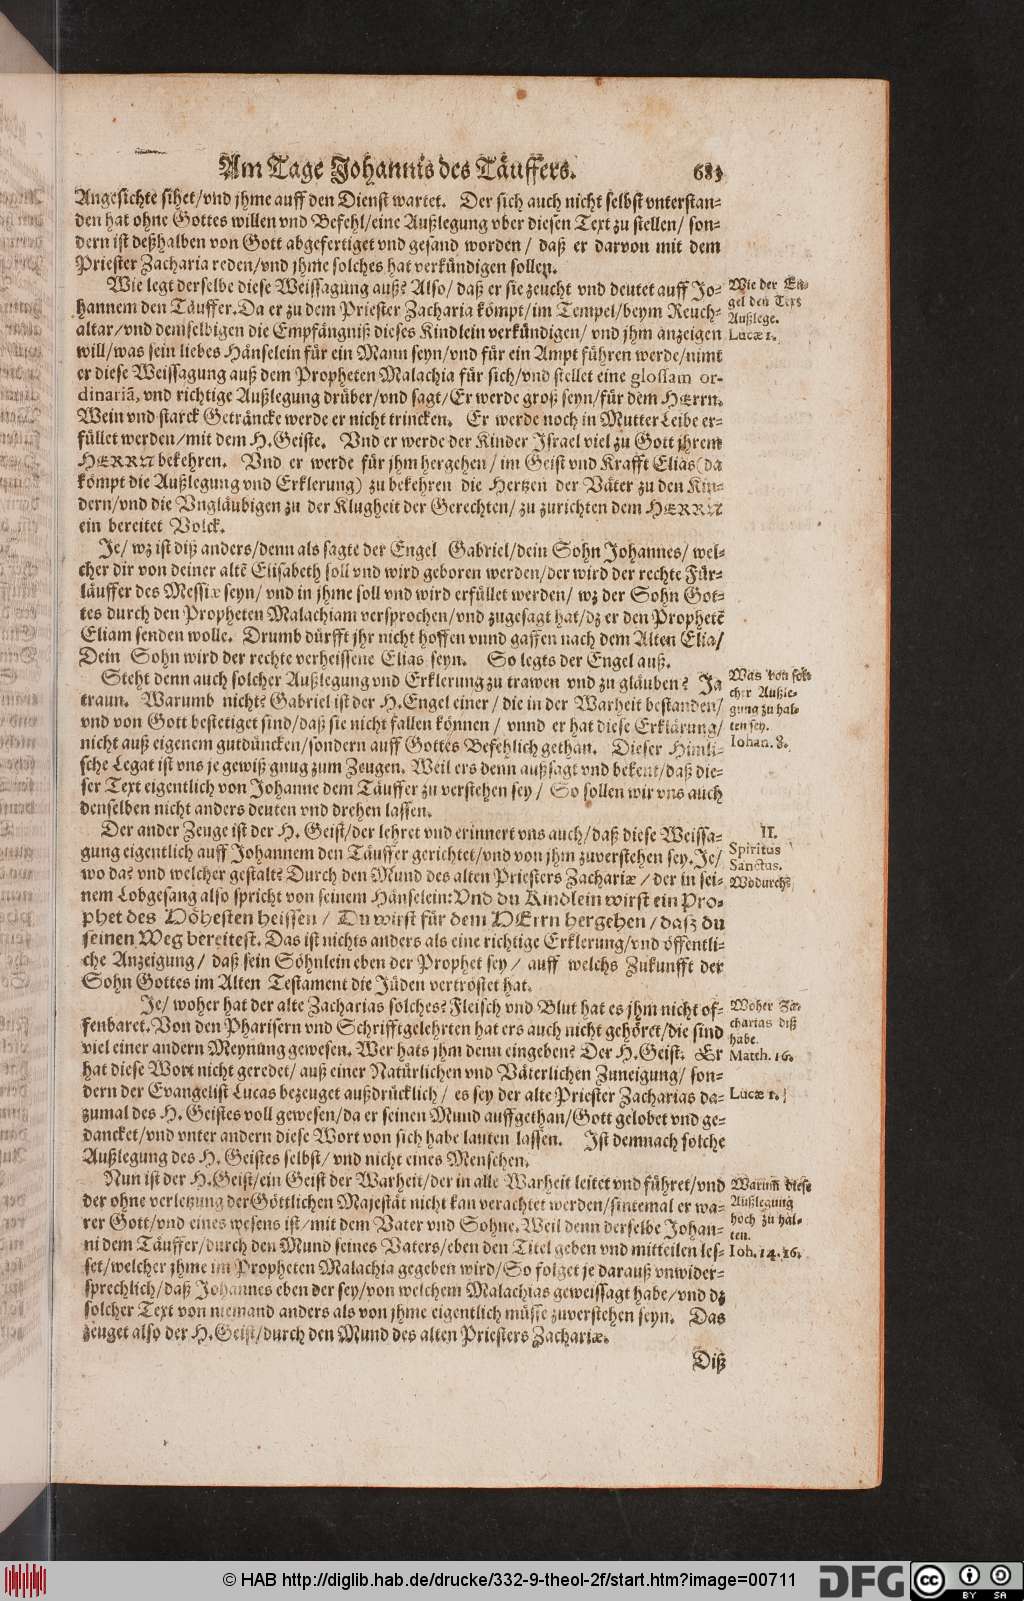 Am Tage Johannis des Täuffers. 683
Angesichte sihet/vnd jhme auff den Dienst wartet. Der sich auch nicht selbst vnterstan-
den hat ohne Gottes willen vnd Befehl/eine Außlegung vber diesen Text zu stellen/ son-
dern ist deßhalben von Gott abgefertiget vnd gesand worden / daß er darvon mit dem
Priester Zacharia reden/vnd jhme solches hat verkündigen sollen.
Wie legt derselbe diese Weissagung auß? Also/ daß er sie zeucht vnd deutet auff Jo-
hannem den Täuffer. Da er zu dem Priester Zacharia kömpt/im Tempel/beym Reuch-
altar/vnd demselbigen die Empfängniß dieses Kindlein verkündigen/ vnd jhm anzeigen
will/was sein liebes Hänselein für ein Mann seyn/vnd für ein Ampt führen werde/nimt
er diese Weissagung auß dem Propheten Malachia für sich/vnd stellet eine glossam or-
dinariã, vnd richtige Außlegung drüber/vnd sagt/Er werde groß seyn/für dem HErrn.
Wein vnd starck Geträncke werde er nicht trincken. Er werde noch in Mutter Leibe er-
füllet werden/mit dem H. Geiste. Vnd er werde der Kinder Israel viel zu Gott jhrem
HERRN bekehren. Vnd er werde für jhm hergehen / im Geist vnd Krafft Elias (da
kömpt die Außlegung vnd Erklerung) zu bekehren die Hertzen der Väter zu den Kin-
dern/vnd die Vngläubigen zu der Klugheit der Gerechten/ zu zurichten dem HERRN
ein bereitet Volck.
Wie der En-
gel den Text
Außlege.
Lucæ 1.
Je/ wz ist diß anders/denn als sagte der Engel Gabriel/dein Sohn Johannes/ wel-
cher dir von deiner altẽ Elisabeth soll vnd wird geboren werden/der wird der rechte Für-
läuffer des Messiæ seyn/ vnd in jhme soll vnd wird erfüllet werden/ wz der Sohn Got-
tes durch den Propheten Malachiam versprochen/vnd zugesagt hat/dz er den Prophetẽ
Eliam senden wolle. Drumb dürfft jhr nicht hoffen vnnd gaffen nach dem Alten Elia/
Dein Sohn wird der rechte verheissene Elias seyn. So legts der Engel auß.
Steht denn auch solcher Außlegung vnd Erklerung zu trawen vnd zu gläuben? Ja
traun. Warumb nicht? Gabriel ist der H. Engel einer / die in der Warheit bestanden/
vnd von Gott bestetiget sind/daß sie nicht fallen können / vnnd er hat diese Erklärung/
nicht auß eigenem gutdüncken/sondern auff Gottes Befehlich gethan. Dieser Himli-
sche Legat ist vns je gewiß gnug zum Zeugen. Weil ers denn außsagt vnd bekent/daß die-
ser Text eigentlich von Johanne dem Täuffer zu verstehen sey / So sollen wir vns auch
denselben nicht anders deuten vnd drehen lassen.
Was von sol-
cher Außle-
gung zu hal-
ten sey.
Iohan. 8.
Der ander Zeuge ist der H. Geist/der lehret vnd erinnert vns auch/daß diese Weissa-
gung eigentlich auff Johannem den Täuffer gerichtet/vnd von jhm zuverstehen sey. Je/
wo da? vnd welcher gestalt? Durch den Mund des alten Priesters Zachariæ / der in sei-
nem Lobgesang also spricht von seinem Hänselein: Vnd du Kindlein wirst ein Pro-
phet des Höhesten heissen / Du wirst für dem HErrn hergehen / daß du
seinen Weg bereitest. Das ist nichts anders als eine richtige Erklerung/vnd öffentli-
che Anzeigung / daß sein Söhnlein eben der Prophet sey / auff welchs Zukunfft der
Sohn Gottes im Alten Testament die Jüden vertröstet hat.
II.
Spiritus
Sanctus.
Wodurch?
Je/ woher hat der alte Zacharias solches? Fleisch vnd Blut hat es jhm nicht of-
fenbaret. Von den Pharisern vnd Schrifftgelehrten hat ers auch nicht gehöret/die sind
viel einer andern Meynung gewesen. Wer hats jhm denn eingeben? Der H. Geist. Er
hat diese Wort nicht geredet/ auß einer Natürlichen vnd Väterlichen Zuneigung/ son-
dern der Evangelist Lucas bezeuget außdrücklich / es sey der alte Priester Zacharias da-
zumal des H. Geistes voll gewesen/da er seinen Mund auffgethan/Gott gelobet vnd ge-
dancket/vnd vnter andern diese Wort von sich habe lauten lassen. Ist demnach solche
Außlegung des H. Geistes selbst/ vnd nicht eines Menschen.
Woher Za-
charias diß
habe.
Matth. 16.
Lucæ 1.
Nun ist der H. Geist/ein Geist der Warheit/der in alle Warheit leitet vnd führet/vnd
der ohne verletzung der Göttlichen Majestät nicht kan verachtet werden/sintemal er wa-
rer Gott/vnd eines wesens ist/mit dem Vater vnd Sohne. Weil denn derselbe Johan-
ni dem Täuffer/durch den Mund seines Vaters/eben den Titel geben vnd mitteilen les-
set/welcher jhme im Propheten Malachia gegeben wird/So folget je darauß vnwider-
sprechlich/daß Johannes eben der sey/von welchem Malachias geweissagt habe/vnd dz
solcher Text von niemand anders als von jhme eigentlich müsse zuverstehen seyn. Das
zeuget also der H. Geist/durch den Mund des alten Priesters Zachariæ.
Warum̃ diese
Außlegung
hoch zu hal-
ten.
Ioh. 14. 16.
Diß
© HAB http://diglib.hab.de/drucke/332-9-theol-2f/start.htm?image=00711
DFG
cc BY SA